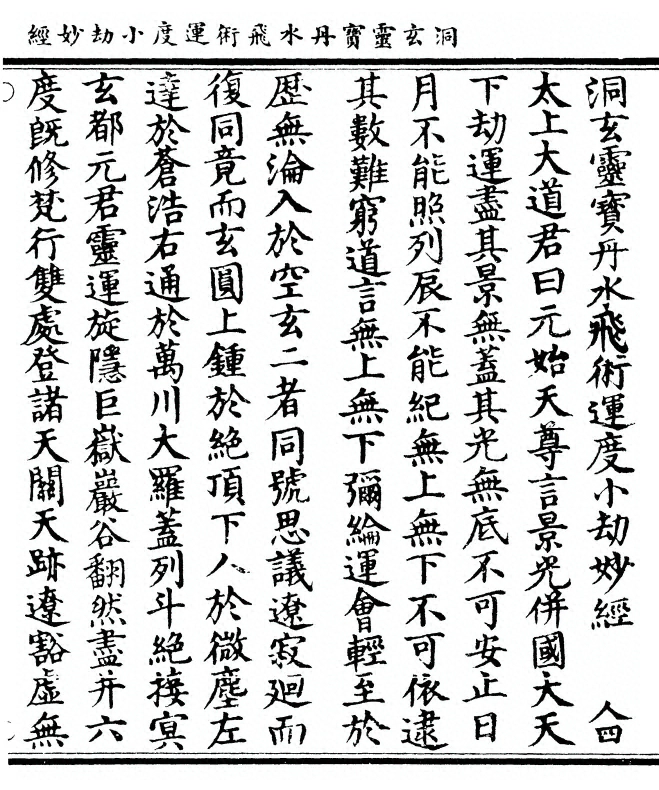 洞玄靈寶丹水飛術運度小劫妙經
洞玄靈寶丹水飛術運度小劫妙經 人四
太上大道君曰元始天尊言景光併國大天
下劫運盡其景無蓋其光無底不可安止日
月不能照列辰不能紀無上無下不可依逮
其數難窮道言無上無下彌綸運會輕至於
歷無淪入於空玄二者同號思議遼寂廻而
復同竟而玄圓上鍾於絶頂下八於微塵左
達於蒼浩右通於萬川大羅蓋列斗絶接㝠
玄都元君靈運旋隱巨嶽巖谷翻然盡并六
度既修梵行雙處登諸天關天跡遼豁虛無